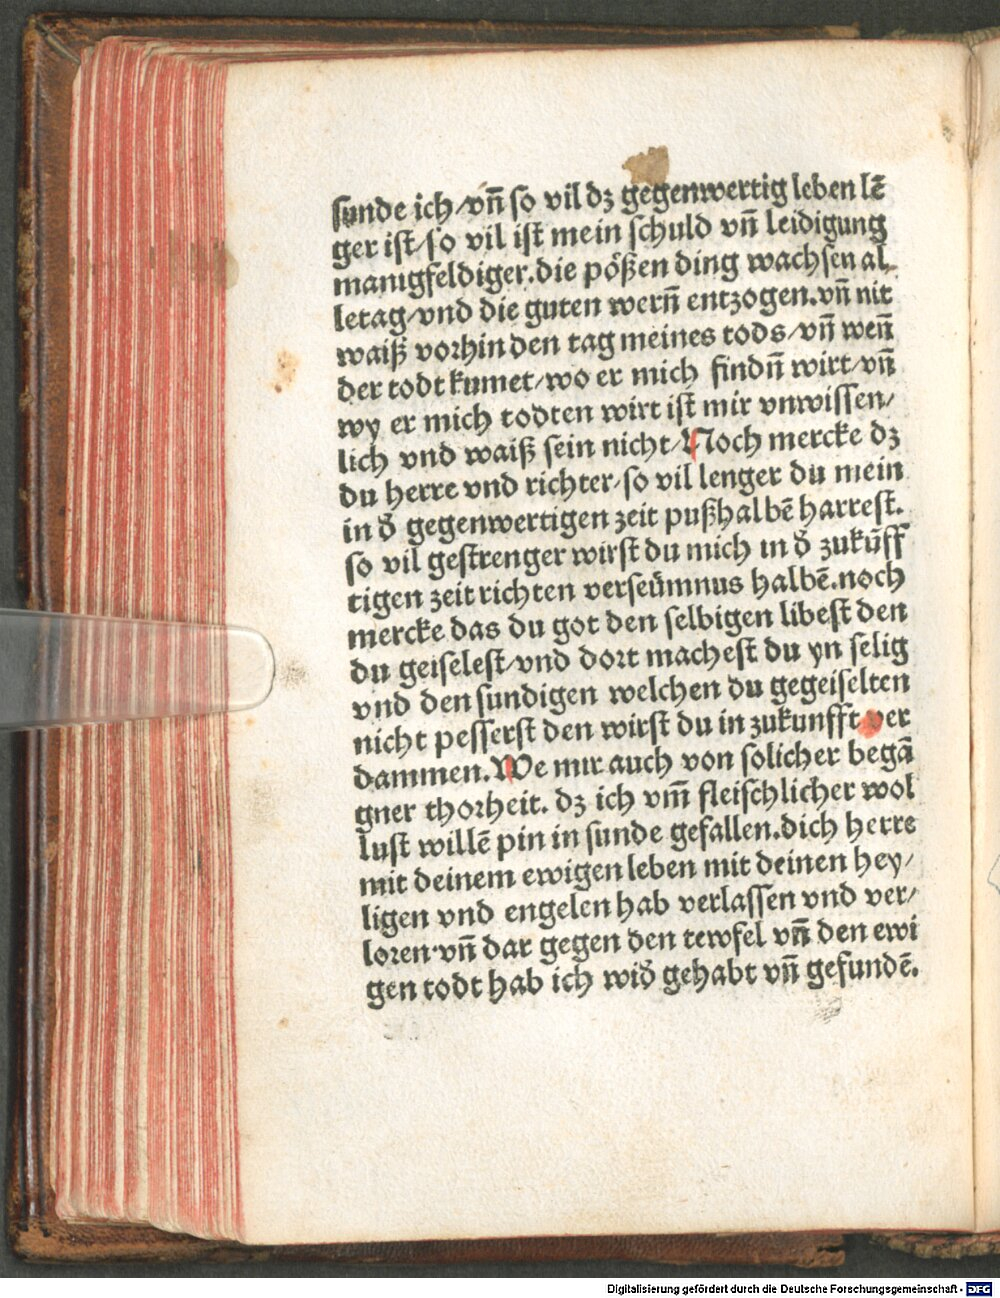 sunde ich/vñ so vil dz gegenwertig leben lē
ger ist/so vil ist mein schuld vñ leidigung
manigfeldiger.die pößen ding wachsen al
letag/vnd die guten wern̄ entzogen.vñ nit
waiß vorhin den tag meines tods/vñ wen̄
der todt kumet/wo er mich findn̄ wirt/vñ
wy er mich todten wirt ist mir vnwissen/
lich vnd waiß sein nicht/Noch mercke dz
du herre vnd richter/so vil lenger du mein
in d̄ gegenwertigen zeit pußhalbē harrest.
so vil gestrenger wirst du mich in d̄ zukūff
tigen zeit richten verseümnus halbē.noch
mercke das du got den selbigen libest den
du geiselest/vnd dort machest du yn selig
vnd den sundigen welchen du gegeiselten
nicht pesserst den wirst du in zukunfft ver
dammen.We mir auch von solicher begā
gner thorheit. dz ich vm̄ fleischlicher wol
lust willē pin in sunde gefallen.dich herre
mit deinem ewigen leben mit deinen hey/
ligen vnd engelen hab verlassen vnd ver/
loren·vñ dar gegen den tewfel vñ den ewi
gen todt hab ich wid̄ gehabt vñ gefundē.
Digitalisierung gefördert durch die Deutsche Forschungsgemeinschaft - DFG